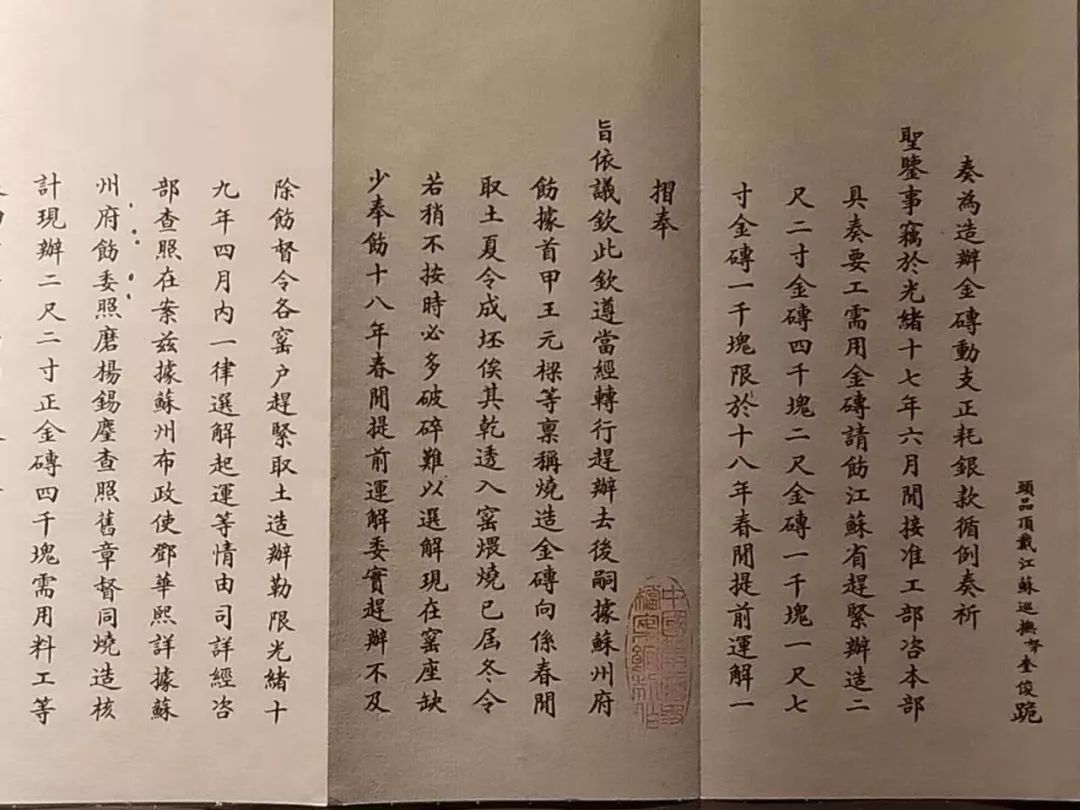 頭品頂戴江蘇巡撫奎俊跪
奏為造辦金磚動支正耗銀款循例奏祈
聖鑒事竊於光緒十七年六月間接准工部咨本部
具奏要工需用金磚請飭江蘇省趕緊辦造二
尺二寸金磚四千塊二尺金磚一千塊一尺七
寸金磚一千塊限於十八年春間提前運解一
摺奉
旨依議欽此欽遵當經轉行趕辦去後嗣據蘇州府
飭據首甲王元樑等稟稱燒造金磚向係春間
取土夏令成坯俟其乾透入窰煨燒已屆冬令
若稍不按時必多破碎難以選解現在窰座缺
少奉飭十八年春間提前運解委實趕辦不及
除飭督令各窰户趕緊取土造辦勒限光緒十
九年四月內一律選解起運等情由司詳經咨
部查照在案兹據蘇州布政使鄧華熙詳據蘇
州府飭委照磨楊錫麈查照舊章督同燒造核
計現辦二尺二寸正金磚四千塊需用料工等